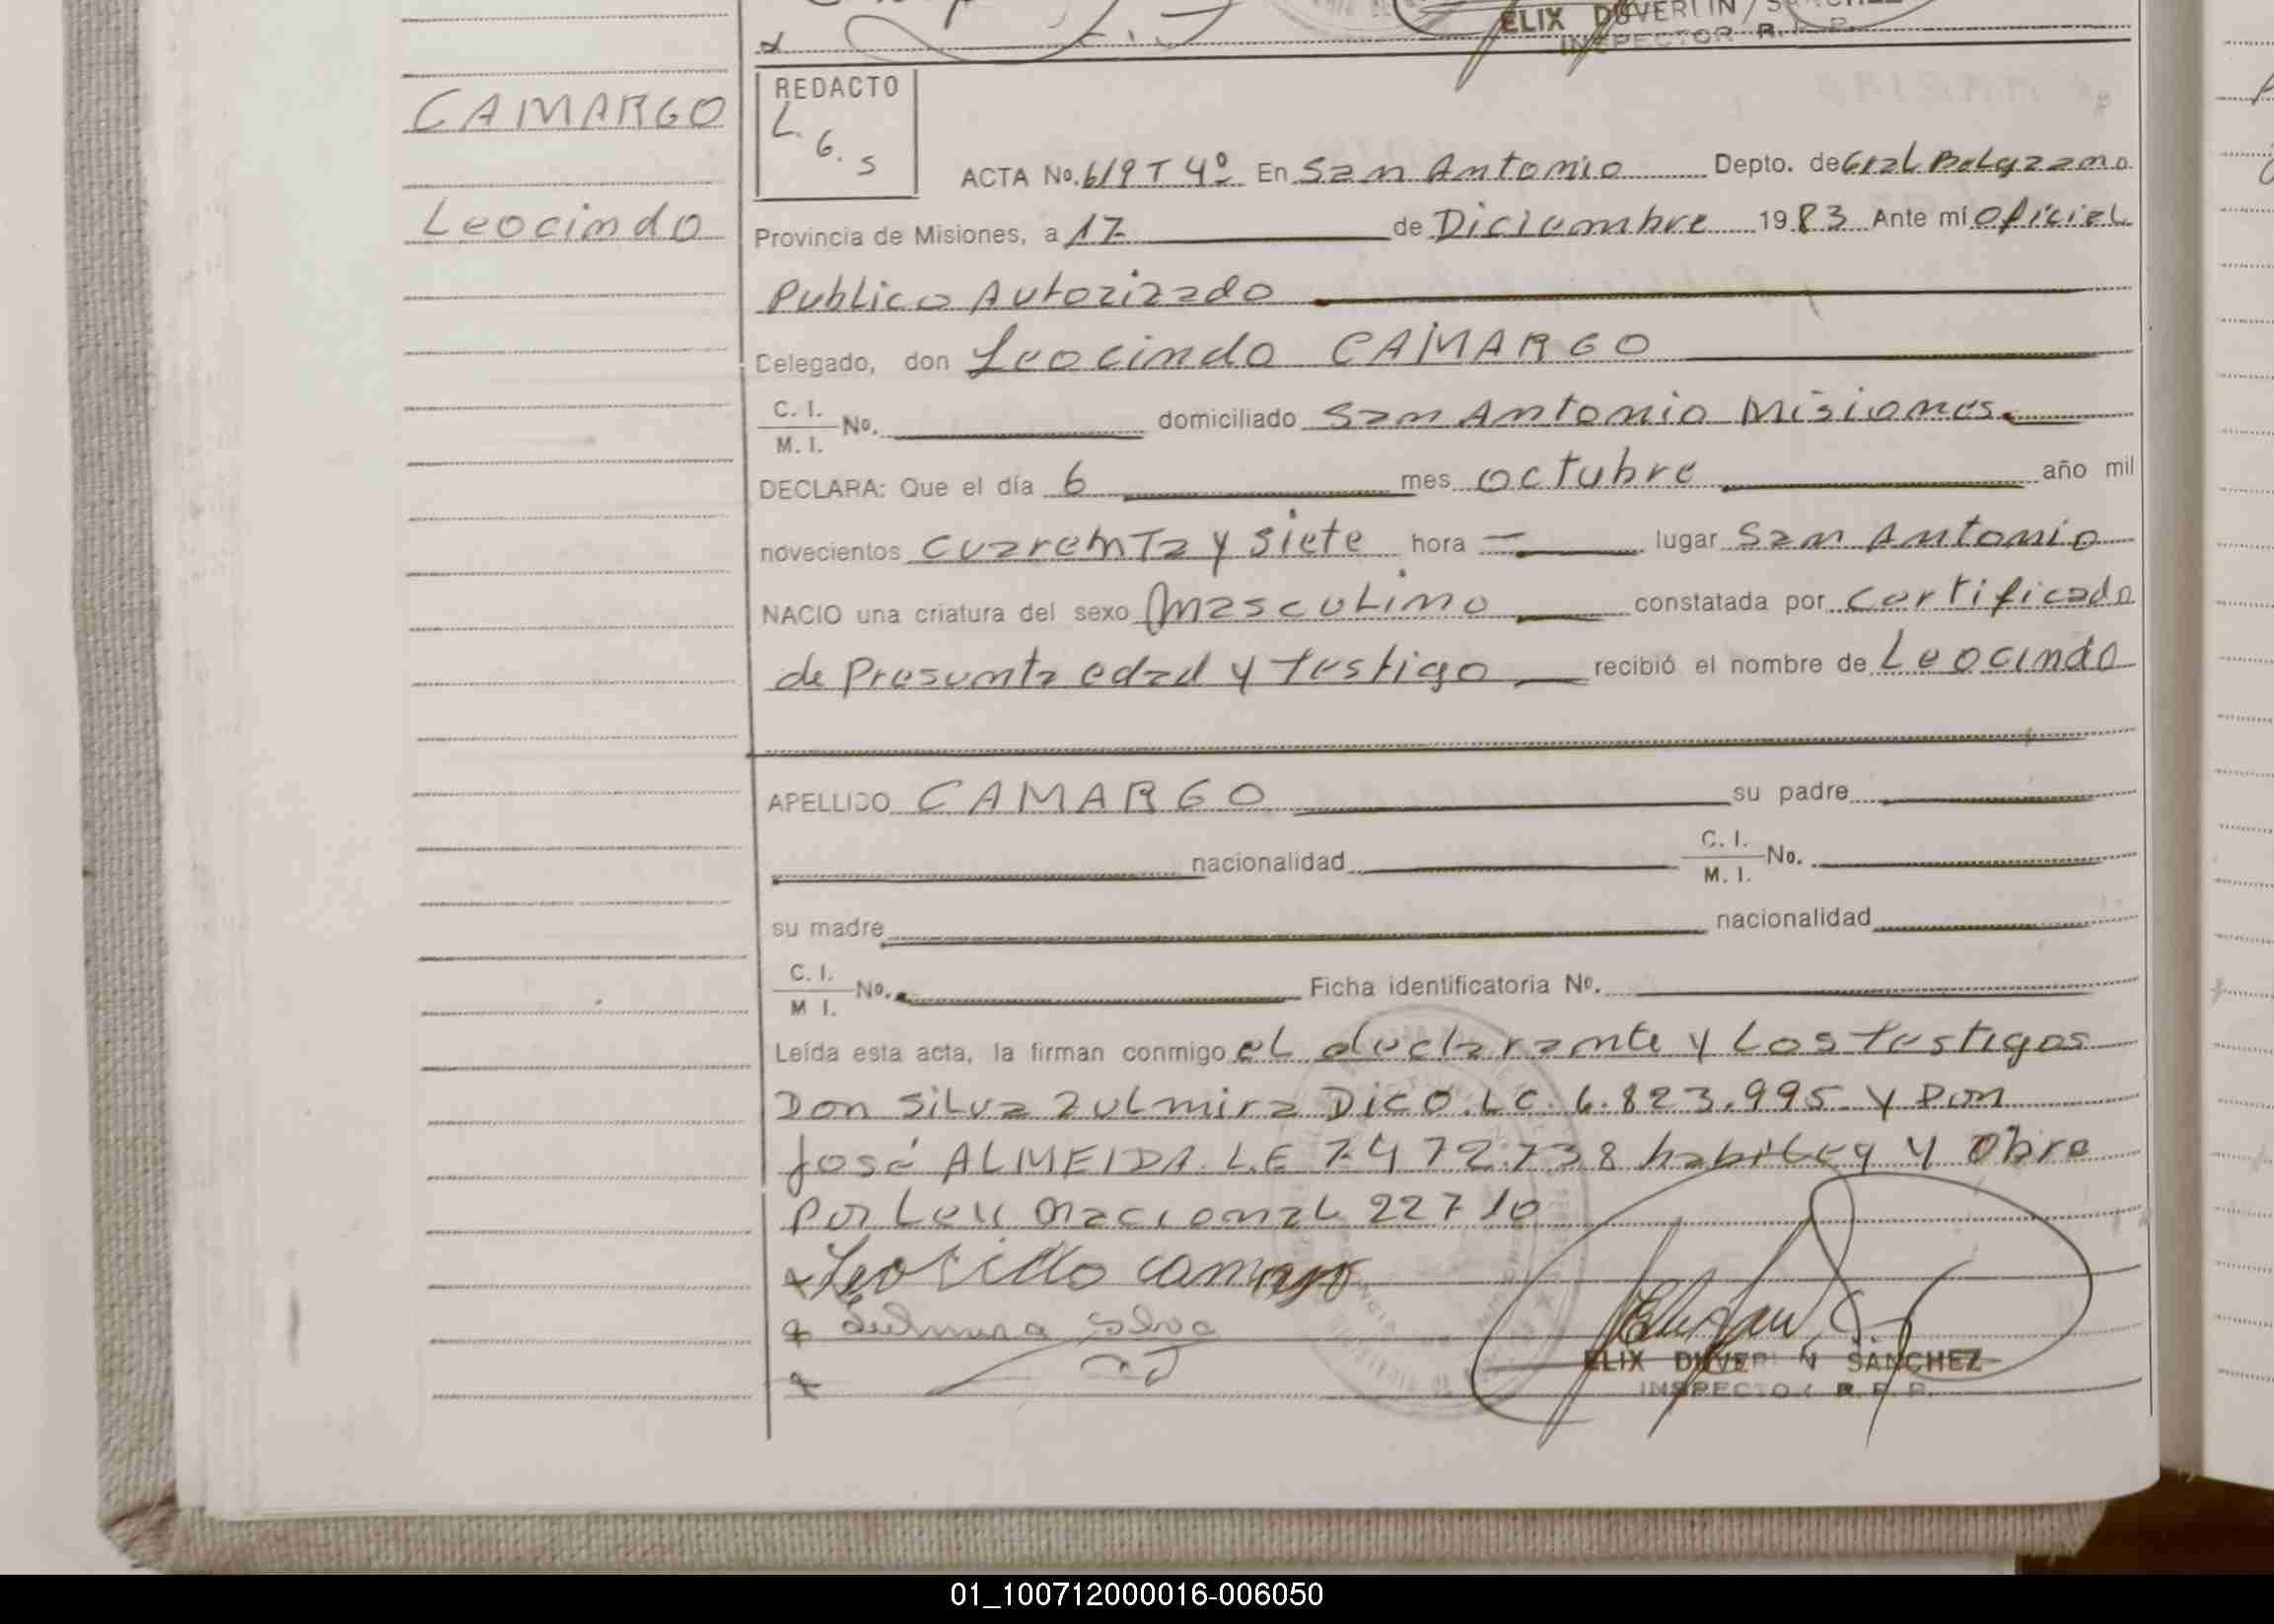 ELIX DUVERLIN SANCHEZ
INSPECTOR R. P. P.
CAMARGO
Leocindo
REDACTO
L.
G. S
ACTA No. 619 T 4º En San Antonio Depto. de Gral Belgrano
Provincia de Misiones, a 17 de Diciembre 1983 Ante mí oficial
Publico Autorizado
Celegado, don Leocindo CAMARGO
C. I.
M. I. No. domiciliado San Antonio Misiones.
DECLARA: Que el día 6 mes octubre año mil
novecientos cuarenta y siete hora — lugar San Antonio
NACIO una criatura del sexo masculino constatada por certificado
de Presunta edad y testigo recibió el nombre de Leocindo
APELLIDO CAMARGO su padre
nacionalidad C. I.
M. I. No.
su madre nacionalidad
C. I.
M I. No. Ficha identificatoria No.
Leída esta acta, la firman conmigo el declarante y Los testigos
Don Silva Zulmira Dico. LC. 6.823.995 y Don
José ALMEIDA. L.E 7.472.738 habiles y Obra
por Ley Nacional 22710
Leosido camargo
Zulmira Silva
ELIX DUVERLIN SANCHEZ
INSPECTOR R. P. P.
01_100712000016-006050